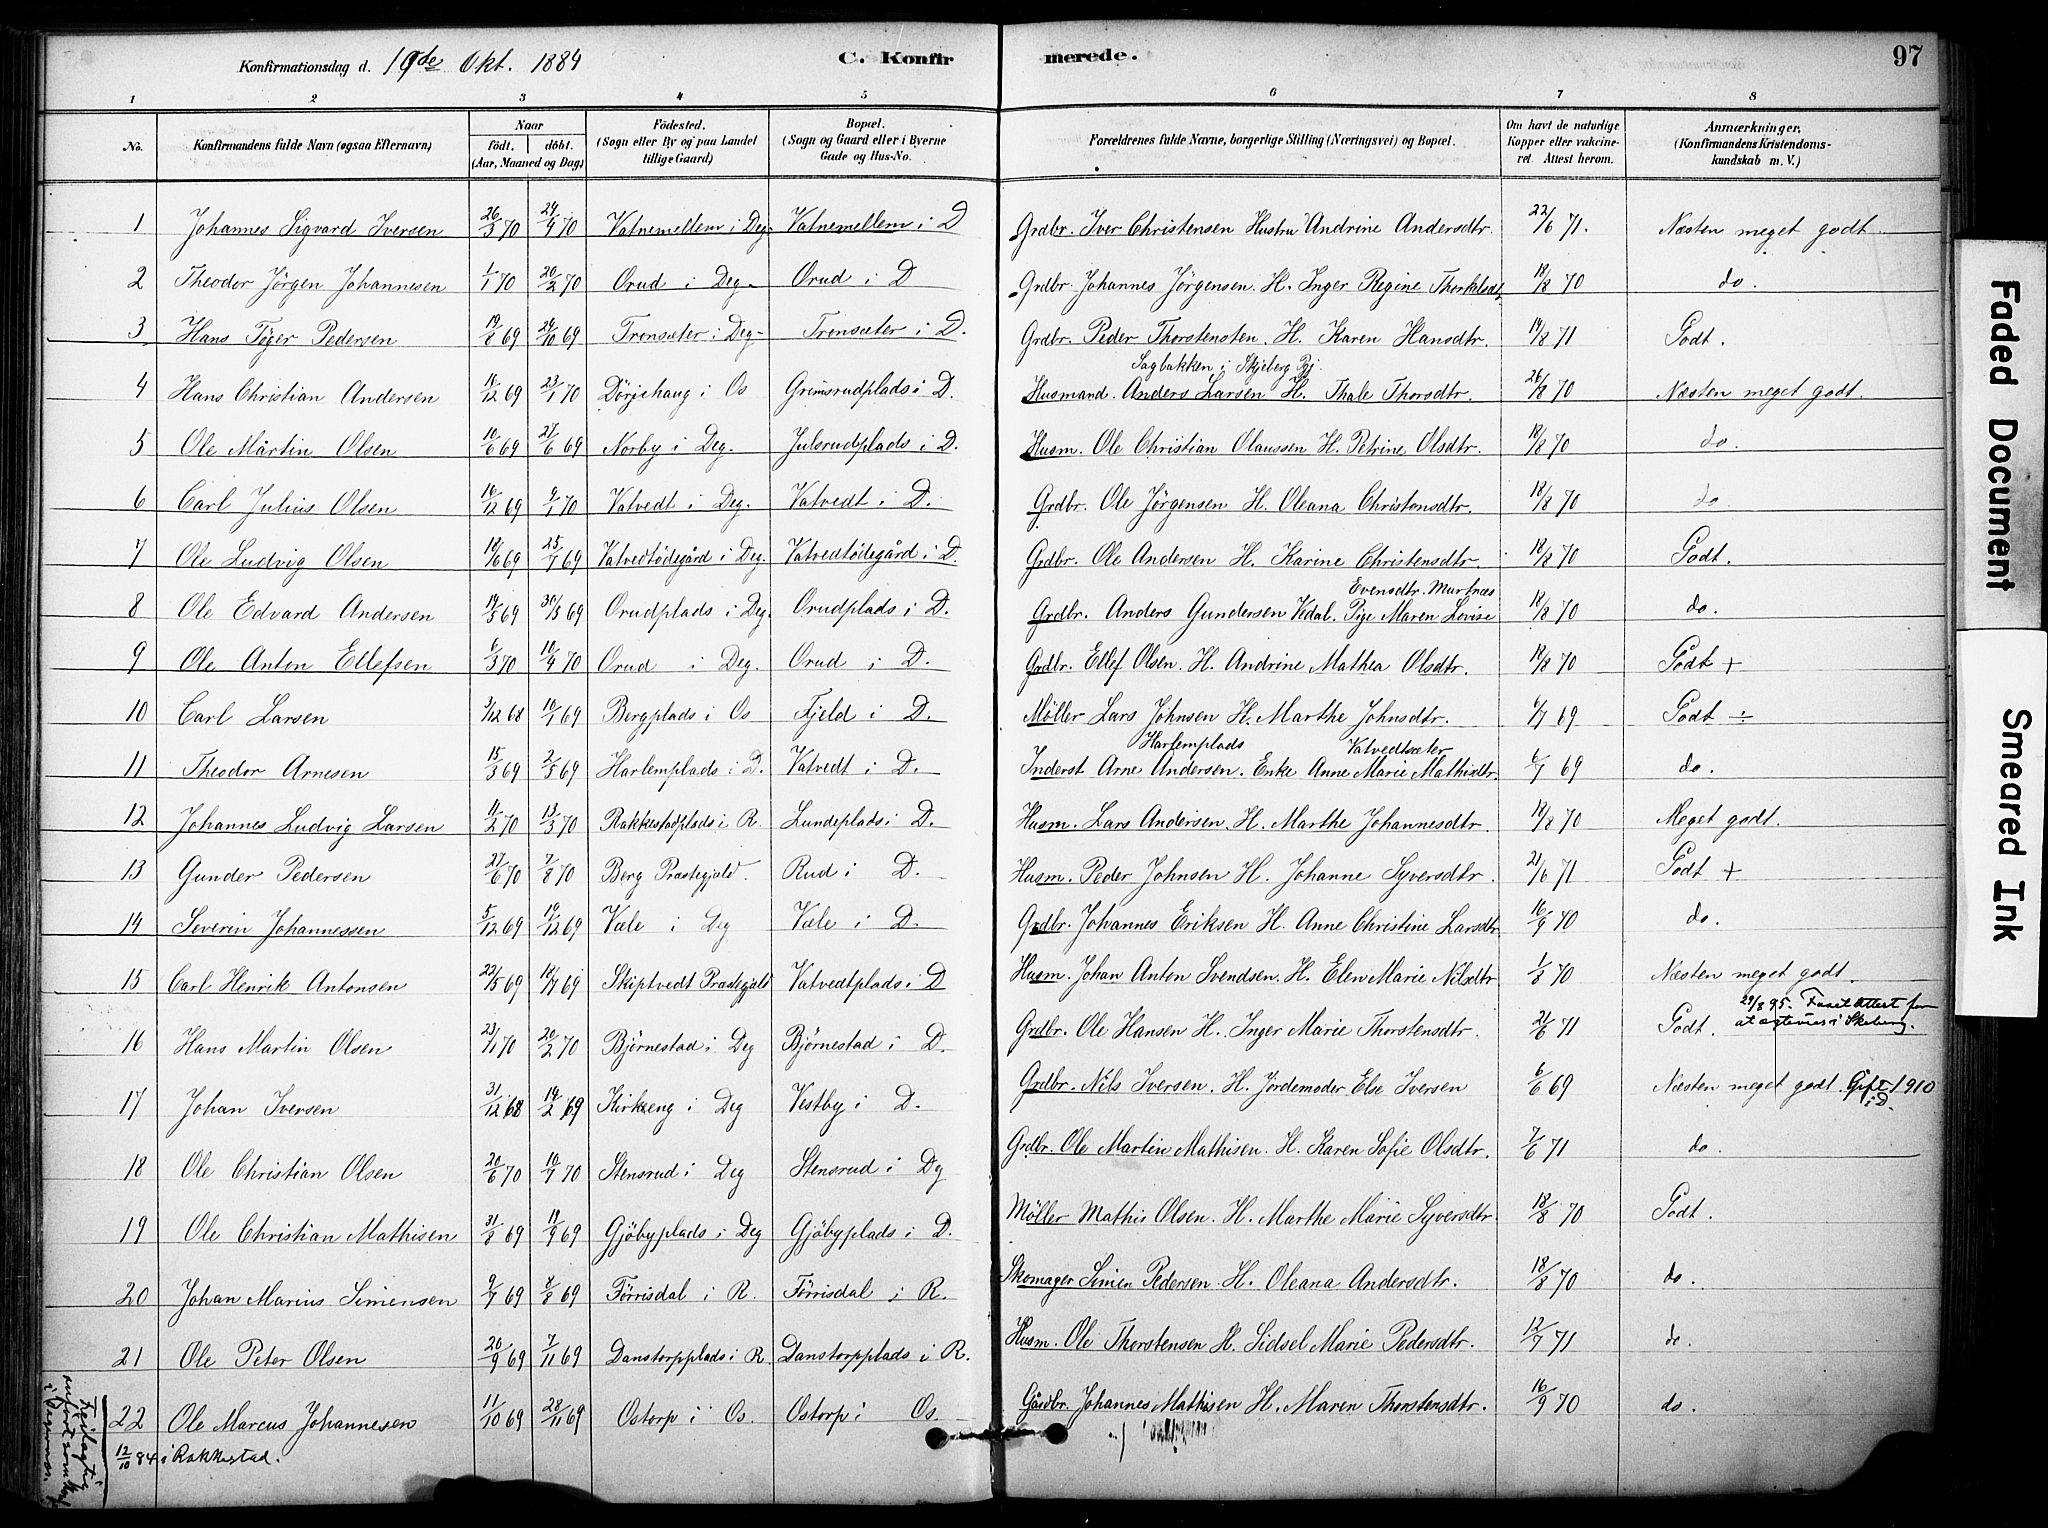 Konfirmationsdag d. 19de Okt. 1884 C. Konfirmerede. 97
1 2 3 4 5 6 7 8
No. Konfirmandens fulde Navn (ogsaa Efternavn) Naar født. døbt. (Aar, Maaned og Dag) Födested. (Sogn eller By og paa Landet tillige Gaard) Bopæl. (Sogn og Gaard eller i Byerne Gade og Hus-No. Forældrenes fulde Navne, borgerlige Stilling (Næringsvei) og Bopæl. Om havt de naturlige Kopper eller vakcineret. Attest herom. Anmærkninger. (Konfirmandens Kristendomskundskab m. V.)
1 Johannes Sigvard Iversen 26/3 70 24/4 70 Vatnemellem i Deg. Vatnemellem i D Grdbr. Iver Christensen Hustru Andrine Andersdtr. 22/6 71. Næsten meget godt.
2 Theodor Jörgen Johannesen 1/1 70 20/2 70 Orud i Deg. Orud i D Grdbr. Johannes Jörgensen. H. Inger Regine 18/8 70 do.
3 Hans Töger Pedersen 19/8 69 24/10 69 Trönsæter i Deg. Trönsæter i D. Grdbr. Peder Thorstensten. H. Karen Hansdtr. 14/8 71 Godt.
Sagbakken i Skjeberg Pgj.
4 Hans Christian Andersen 14/12 69 23/1 70 Dörjehaug i Os Grimsrudplads i D. Husmand. Anders Larsen H. Thale Thorsdtr. 26/8 70 Næsten meget godt.
5 Ole Martin Olsen 10/6 69 27/6 69 Norby i Deg. Julsrudplads i D. Husm. Ole Christian Olaussen H. Petrine Olsdtr. 18/8 70 do.
6 Carl Julius Olsen 16/12 69 9/1 70 Vatvedt i Deg. Vatvedt i D. Grdbr. Ole Jörgensen H. Oleana Christensdtr. 18/8 70 do
7 Ole Ludvig Olsen 18/6 69 25/7 69 Vatvedtödegård i Deg. Vatvedtödegård i D. Grdbr. Ole Andersen H. Karine Christensdtr. 18/8 70 Godt.
Evensdtr. Murtnæs
8 Ole Edvard Andersen 19/5 69 30/5 69 Orudplads i Deg. Orudplads i D. Grdbr. Anders Gundersen Vedal. Pige Maren Lovise 18/8 70 do.
9 Ole Anton Ellefsen 6/3 70 10/4 70 Orud i Deg. Orud i D. Grdbr. Ellef Olsen. H. Andrine Mathea Olsdtr. 18/8 70 Godt +
10 Carl Larsen 3/12 68 10/1 69 Bergplads i Os Fjeld i D. Møller Lars Johnsen H. Marthe Johnsdtr. 6/7 69 Godt ÷
Harlemplads Vatvedtsæter
11 Theodor Arnesen 15/3 69 2/5 69 Harlemplads i D. Vatvedt i D. Inderst Arne Andersen. Enke Anne Marie Mathisdtr. 6/7 69 do.
12 Johannes Ludvig Larsen 11/2 70 13/3 70 Rakkestadplads i R. Lundeplads i D. Husm. Lars Andersen. H. Marthe Johannesdtr. 18/8 70 Meget godt.
13 Gunder Pedersen 27/6 70 7/8 70 Berg Præstegjeld. Rud i D. Husm. Peder Johnsen H. Johanne Syversdtr. 21/6 71 Godt +
14 Severin Johannessen 5/12 69 19/12 69 Væle i Deg Væle i D. Grdbr. Johannes Eriksen H. Anne Christine Larsdtr 16/9 70 do.
15 Carl Henrik Antonsen 22/5 69 18/7 69 Skiptvedt Præstegjeld Vatvedtplads i D Husm. Johan Anton Svendsen. H. Elen Marie Nilsdtr 1/8 70 Næsten meget godt.
16 Hans Martin Olsen 23/1 70 20/2 70 Bjørnestad i Deg Bjørnestad i D. Grdbr. Ole Hansen H. Inger Marie Thorstensdtr. 21/6 71 Godt. 29/8 95. Faaet Attest for at ægtevies i Skeberg.
17 Johan Iversen 31/12 68 14/2 69 Kirkeng i Deg Vestby i D. Grdbr. Nils Iversen. H. Jordemoder Else Iversen 6/6 69 Næsten meget godt. Gift 1910 i D.
18 Ole Christian Olsen 20/6 70 10/7 70 Stensrud i Deg Stensrud i Dg Grdbr. Ole Martin Mathisen. H. Karen Sofie Olsdtr. 7/6 71 do.
19 Ole Christian Mathisen 31/8 69 19/9 69 Gjöbyplads i Deg Gjöbyplads i D. Møller Mathis Olsen. H. Marthe Marie Syversdtr. 18/8 70 Godt.
20 Johan Marius Simensen 9/7 69 8/8 69 Førrisdal i R. Førrisdal i R. Skomager Simen Pedersen. H. Oleana Andersdtr. 18/8 70 do.
21 Ole Peter Olsen 20/9 69 7/11 69 Danstorpplads i R. Danstorpplads i R. Husm. Ole Thorstensen H. Sidsel Marie Pedersdtr. 12/7 71 do.
22 Ole Marcus Johannesen 11/10 69 28/11 69 Ostorp i Os. Ostorp i Os. Gårdbr. Johannes Mathisen H. Maren Thorstensdtr. 16/9 70 do.
12/10 84 i Rakkestad.
Feilagtig
Faded Document
Smeared Ink